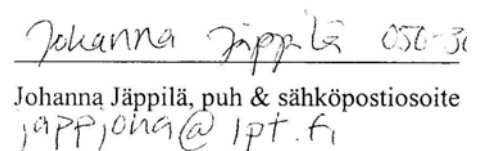 Johanna Jäppilä 050-30
Johanna Jäppilä, puh & sähköpostiosoite
jappjoha@lpt.fi